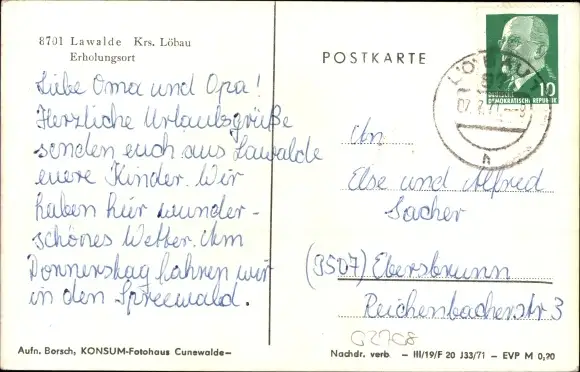 8701 Lawalde Krs. Löbau
Erholungsort
Liebe Oma und Opa!
Herzliche Urlaubsgrüße
senden euch aus Lawalde
eure Kinder. Wir
haben hier wunder-
schönes Wetter. Am
Donnerstag fahren wir
in den Spreewald.
POSTKARTE
10
DEMOKRATISCHE REPUBLIK
An
Else und Alfred
Sacher
(9507) Ebersbrunn
Reichenbacherstr 3
02708
Aufn. Borsch, KONSUM-Fotohaus Cunewalde–
Nachdr. verb – III/19/F 20 J33/71 – EVP M 0,20